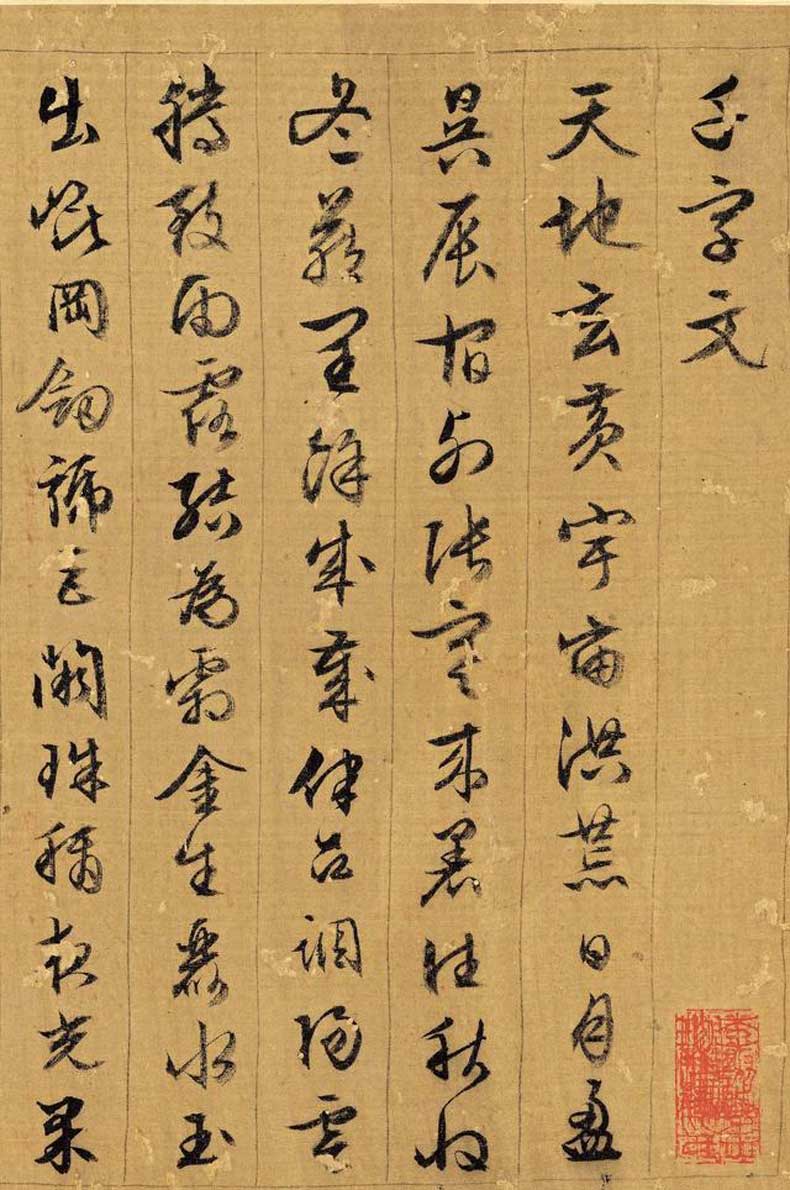 千字文
天地玄黃宇宙洪荒日月盈
昃辰宿列張寒來暑往秋收
冬藏閏餘成歲律呂調陽雲
騰致雨露結為霜金生麗水玉
出崑岡劒號巨闕珠稱夜光果